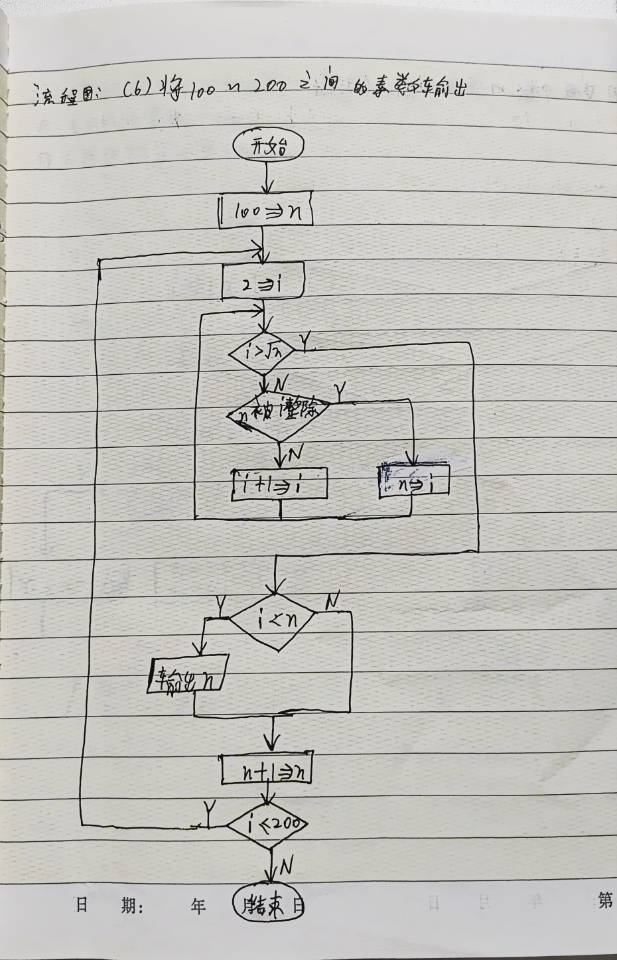 流程图：(6)将100～200之间的素数输出
开始
100⇒n
2⇒i
i>√n Y
N
n被i整除 Y
N
i+1⇒i n⇒i
Y i<n N
输出n
n+1⇒n
Y i≤200
N
结束
日 期： 年 月 日 第